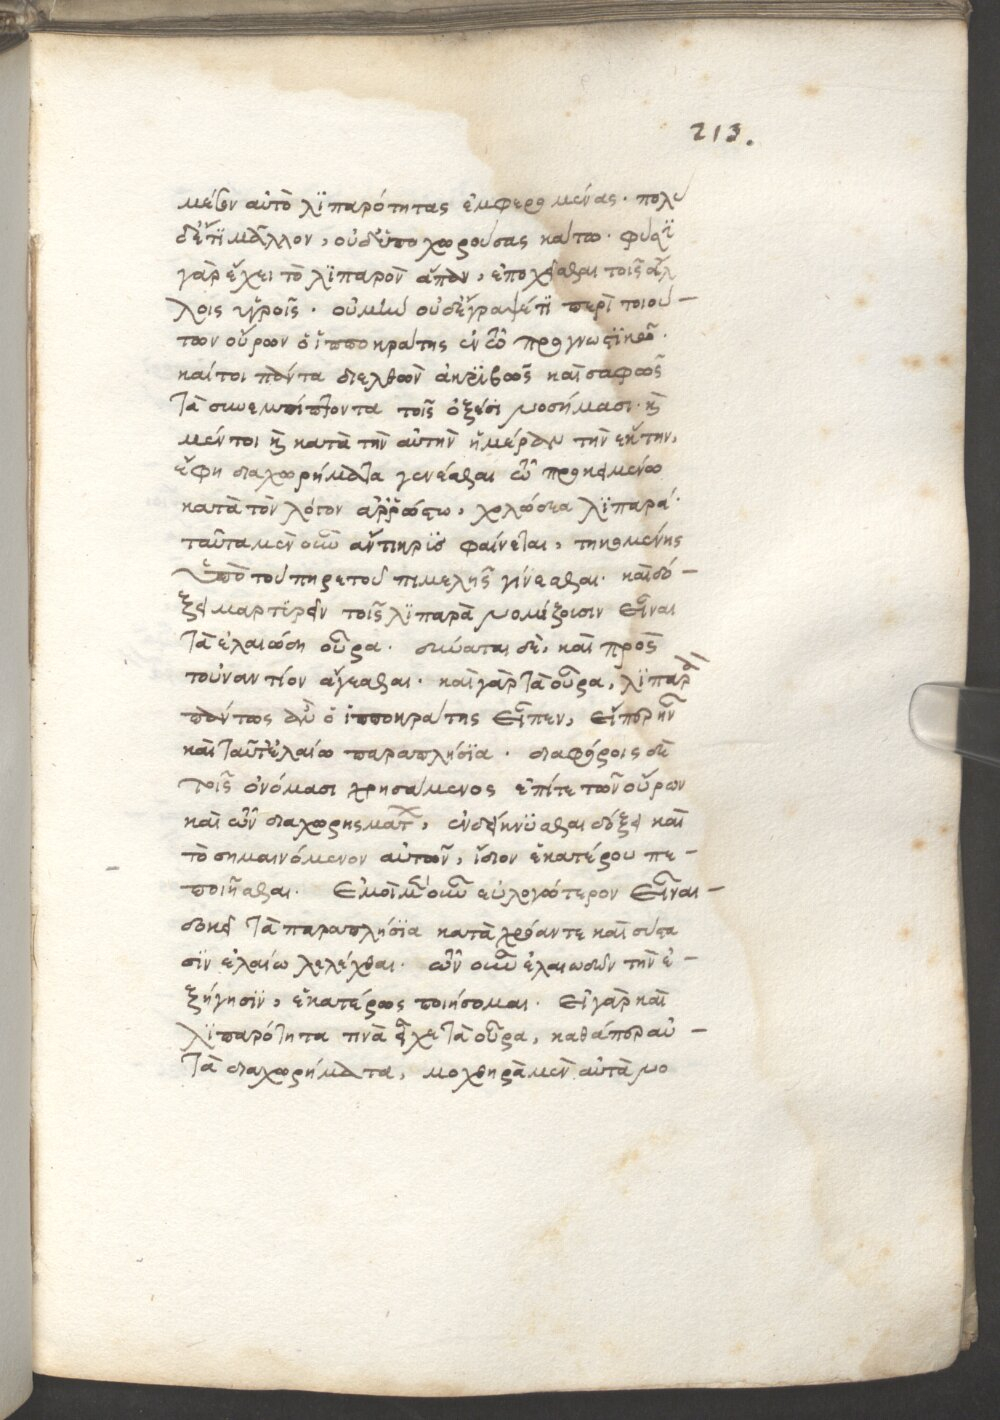 213.
μένον αὐτὸ λϊπαρότητας ἐμφερομένας· πολὺ
δ' ἔτϊ μᾶλλον, οὐδέπο χωρούσας κάτω. φύσϊ
γὰρ ἔχει τὸ λϊπαρὸν ἅπαν, ἐποχεῖσθαι τοῖς ἄλ
λοις ὑγροῖς. οὐ μὴν οὐδ' ἔγραψέ τϊ περὶ τοιού-
των οὔρων ὁ ἱπποκράτης ἐν τῶ προγνωστϊκῶ.
καίτοι πάντα διελθὼν ἀκρϊβῶς καὶ σαφῶς
τὰ συνεμπίπτοντα τοῖς ὀξέσϊ νοσήμασι. καὶ
μέντοι καὶ κατὰ τὴν αὐτὴν ἡμέραν τὴν ἕκτην,
ἔφη διαχωρήματα γενέσθαι τῶ προκειμένω
κατὰ τὸν λόγον ἀρρώστω, χολώδεα λϊπαρά.
ταῦτα μὲν οὖν ἄντικρϋς φαίνεται, τηκομένης
ὑπὸ τοῦ πυρετοῦ πιμελῆς γίνεσθαι. καὶ δό-
ξει μαρτϋρεῖν τοῖς λϊπαρὰ νομίζουσιν εἶναι
τὰ ἐλαιώδη οὖρα. δύναται δὲ, καὶ πρὸς
τοὐναντίον ἄγεσθαι. καὶ γὰρ τὰ οὖρα, λϊπαρὰ
πάντως ἂν ὁ ἱπποκράτης εἶπεν, εἴπερ ἦν
καὶ ταῦτ' ἐλαίω παραπλήσϊα. διαφόροις δὲ
τοῖς ὀνόμασι χρησάμενος ἐπί τε τῶν οὔρων
καὶ τῶν διαχωρημάτων, ἐνδείκνϋσθαι δόξει καὶ
τὸ σημαινόμενον αὐτῶν, ἴδιον ἑκατέρου πε-
ποιῆσθαι. ἐμοὶ μὲν οὖν εὐλογώτερον εἶναι-
δοκεῖ τὰ παραπλήσϊα κατὰ χρόαν τε καὶ σύστα
σϊν ἐλαίω λελέχθαι. τῶν οὖν ἐλαιωδῶν τὴν ἐ-
ξήγησϊν, ἑκατέρως ποιήσομαι. εἰ γὰρ καὶ
λϊπαρότητα τινὰ ἔχει τὰ οὖρα, καθάπερ αὐ-
τὰ διαχωρήματα, μοχθηρὰ μὲν αὐτὰ νο